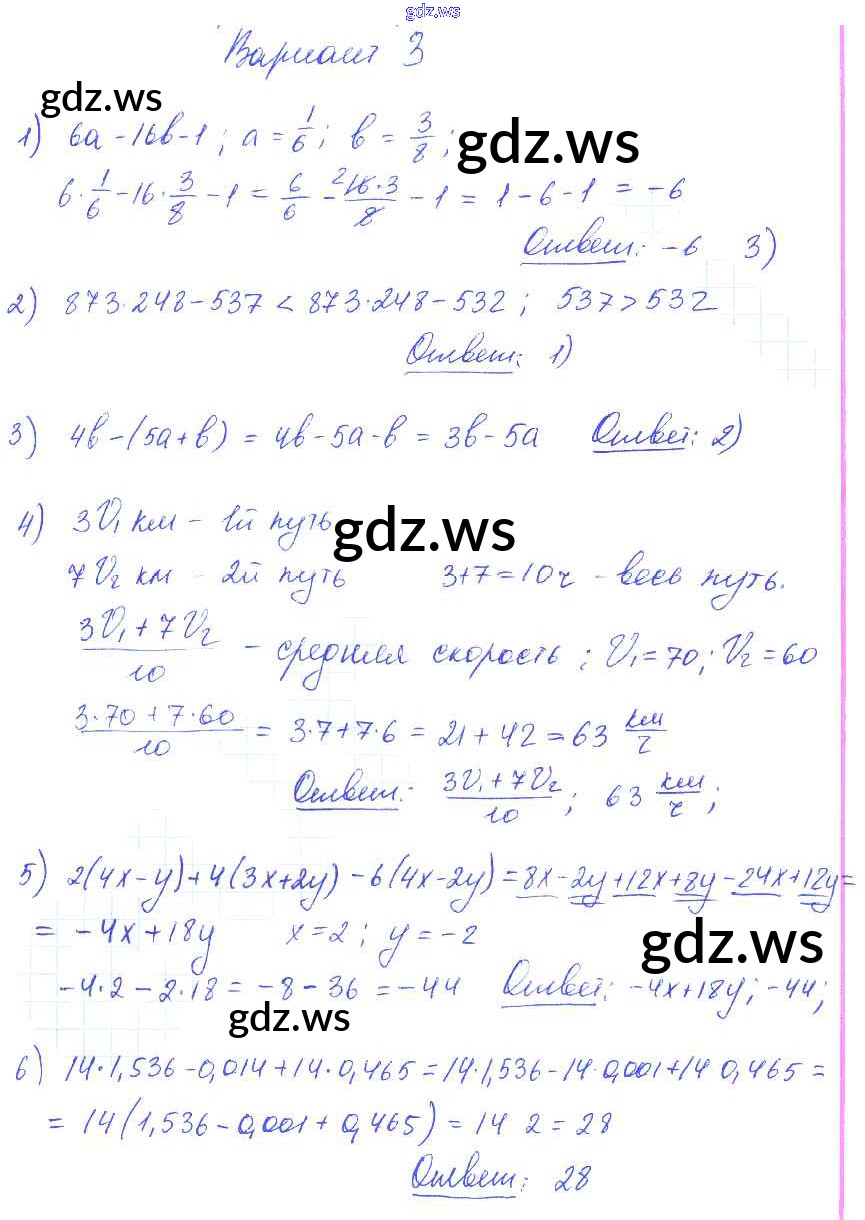 gdz.ws
Вариант 3
gdz.ws
1) 6a - 16b - 1 ; a = 1/6 ; b = 3/8 ;
gdz.ws
6 · 1/6 - 16 · 3/8 - 1 = 6/6 - 2 16·3/8 - 1 = 1 - 6 - 1 = -6
Ответ: -6 3)
2) 873·248 - 537 < 873·248 - 532 ; 537 > 532
Ответ: 1)
3) 4b - (5a + b) = 4b - 5a - b = 3b - 5a Ответ: 2)
4) 3V₁ км - 1й путь
gdz.ws
7V₂ км - 2й путь 3+7=10ч - весь путь.
(3V₁ + 7V₂)/10 - средняя скорость ; V₁ = 70 ; V₂ = 60
(3·70 + 7·60)/10 = 3·7 + 7·6 = 21 + 42 = 63 км/ч
Ответ: (3V₁ + 7V₂)/10 ; 63 км/ч ;
5) 2(4x - y) + 4(3x + 2y) - 6(4x - 2y) = 8x - 2y + 12x + 8y - 24x + 12y =
= -4x + 18y x = 2 ; y = -2
gdz.ws
-4·2 - 2·18 = -8 - 36 = -44 Ответ: -4x + 18y ; -44 ;
gdz.ws
6) 14·1,536 - 0,014 + 14·0,465 = 14·1,536 - 14·0,001 + 14 0,465 =
= 14(1,536 - 0,001 + 0,465) = 14 2 = 28
Ответ: 28